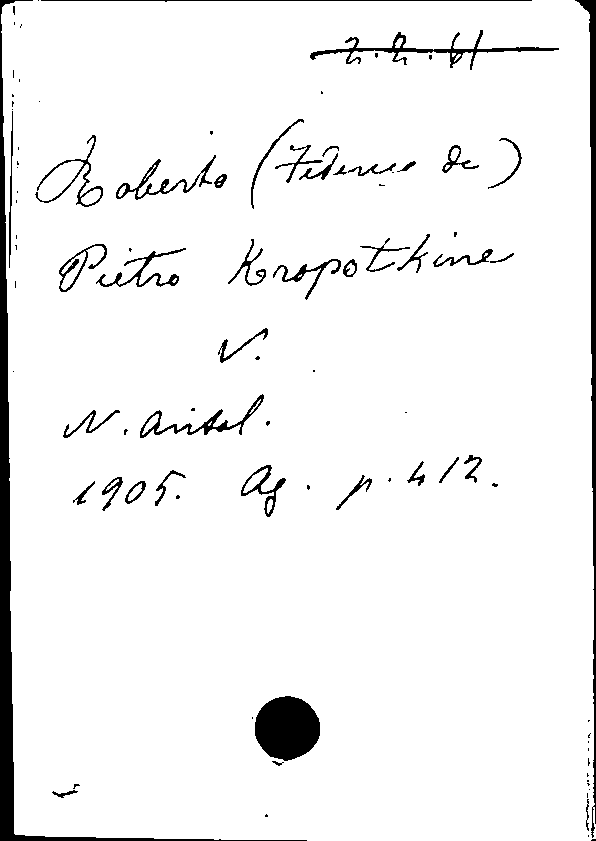 2.2.61
Roberto (Federico de)
Pietro Kropotkine
V.
N. Antol.
1905. Ag. p. 412.